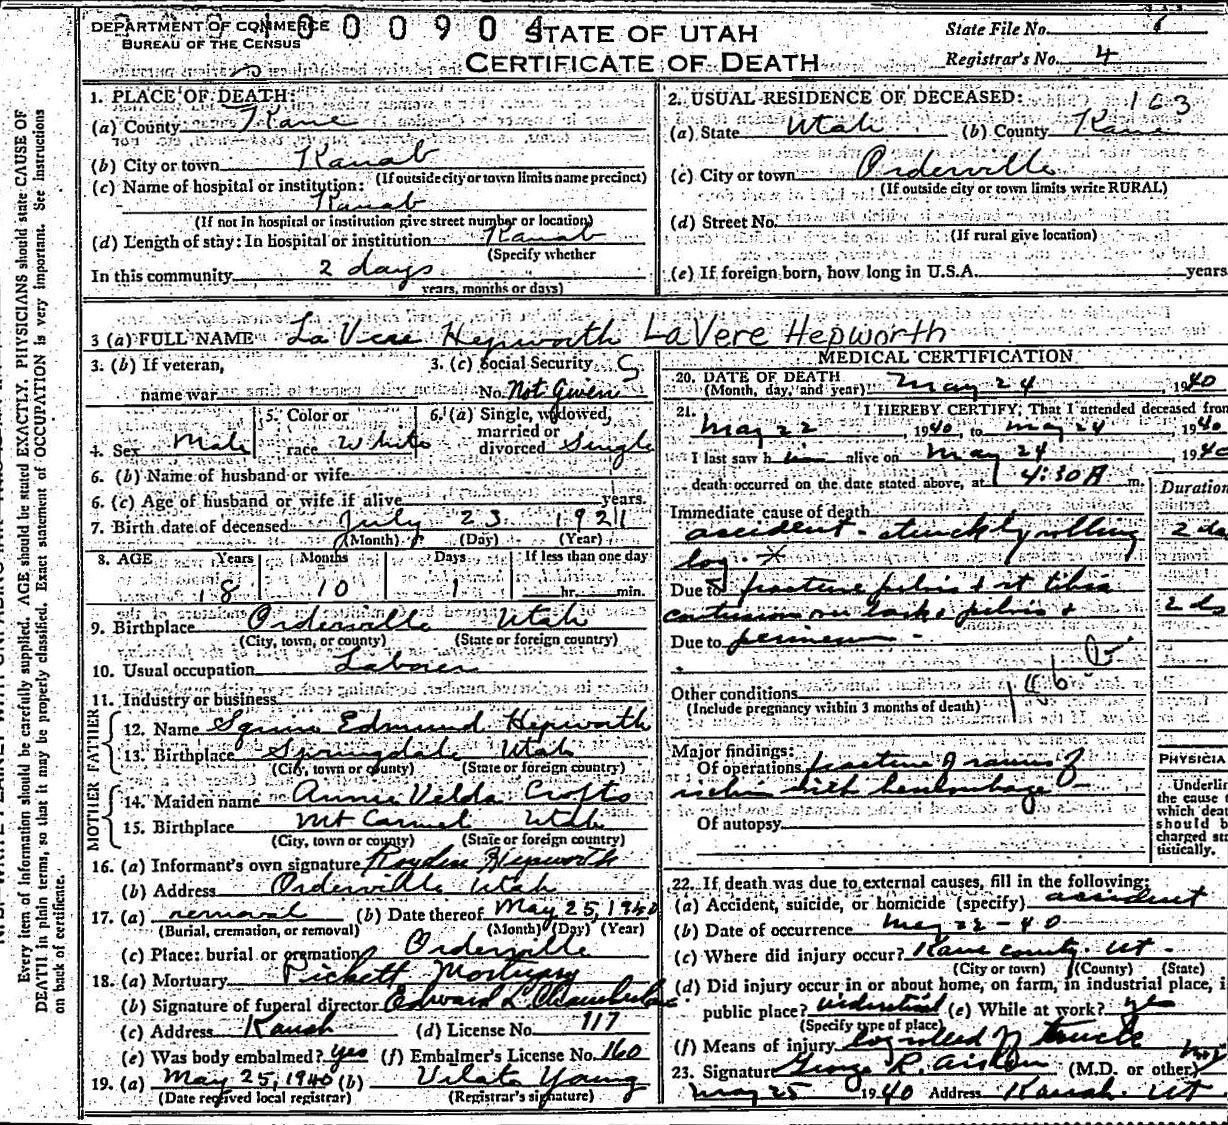 DEPARTMENT OF COMMERCE
BUREAU OF THE CENSUS
0 0 0 9 0 4
STATE OF UTAH
CERTIFICATE OF DEATH
State File No.
Registrar's No. 4
1. PLACE OF DEATH:
(a) County Kane
(b) City or town Kanab
(If outside city or town limits name precinct)
(c) Name of hospital or institution:
Kanab
(If not in hospital or institution give street number or location)
(d) Length of stay: In hospital or institution Kanab
(Specify whether
In this community 2 days
years, months or days)
2. USUAL RESIDENCE OF DECEASED: 163
(a) State Utah (b) County Kane
(c) City or town Orderville
(If outside city or town limits write RURAL)
(d) Street No.
(If rural give location)
(e) If foreign born, how long in U.S.A. years
3 (a) FULL NAME La Vere Hepworth La Vere Hepworth
3. (b) If veteran,
name war
3. (c) Social Security S
No. Not Given
4. Sex Male
5. Color or
race White
6. (a) Single, widowed,
married or
divorced Single
6. (b) Name of husband or wife
6. (c) Age of husband or wife if alive years.
7. Birth date of deceased July 23 1921
(Month) (Day) (Year)
8. AGE Years Months Days If less than one day
18 10 1 hr. min.
9. Birthplace Orderville Utah
(City, town, or county) (State or foreign country)
10. Usual occupation Laborer
11. Industry or business
FATHER
12. Name Squire Edmund Hepworth
13. Birthplace Springdale Utah
(City, town or county) (State or foreign country)
MOTHER
14. Maiden name Annie Velda Crofts
15. Birthplace Mt Carmel Utah
(City, town or county) (State or foreign country)
16. (a) Informant's own signature Royden Hepworth
(b) Address Orderville Utah
17. (a) removal (b) Date thereof May 25, 1940
(Burial, cremation, or removal) (Month) (Day) (Year)
(c) Place: burial or cremation Orderville
18. (a) Mortuary Pickett Mortuary
(b) Signature of funeral director Edward L Chamberlain
(c) Address Kanab (d) License No. 117
(e) Was body embalmed? yes (f) Embalmer's License No. 160
19. (a) May 25, 1940 (b) Vilate Young
(Date received local registrar) (Registrar's signature)
MEDICAL CERTIFICATION
20. DATE OF DEATH May 24, 1940
(Month, day, and year)
21. I HEREBY CERTIFY, That I attended deceased from
May 22, 1940, to May 24, 1940
I last saw him alive on May 24 1940
death occurred on the date stated above, at 4:30 A m.
Duration
Immediate cause of death
accident - struck by rolling 2 da
log. *
Due to fracture pelvis & rt tibia
contusion on back & pelvis & 2 da
Due to perineum -
186
Other conditions
(Include pregnancy within 3 months of death)
Major findings:
Of operations fracture of ramus of
ischium with hemorrhage
Of autopsy
PHYSICIA
Underlin
the cause t
which deat
should b
charged sta
tistically.
22. If death was due to external causes, fill in the following:
(a) Accident, suicide, or homicide (specify) accident
(b) Date of occurrence May 22-40
(c) Where did injury occur? Kane county Ut -
(City or town) (County) (State)
(d) Did injury occur in or about home, on farm, in industrial place, i
public place? industrial (e) While at work? yes
(Specify type of place)
(f) Means of injury log rolled off truck
23. Signature George R. Aiken (M.D. or other)
May 25 1940 Address Kanab. Ut
Every item of information should be carefully supplied. AGE should be stated EXACTLY. PHYSICIANS should state CAUSE OF
DEATH in plain terms, so that it may be properly classified. Exact statement of OCCUPATION is very important. See instructions
on back of certificate.